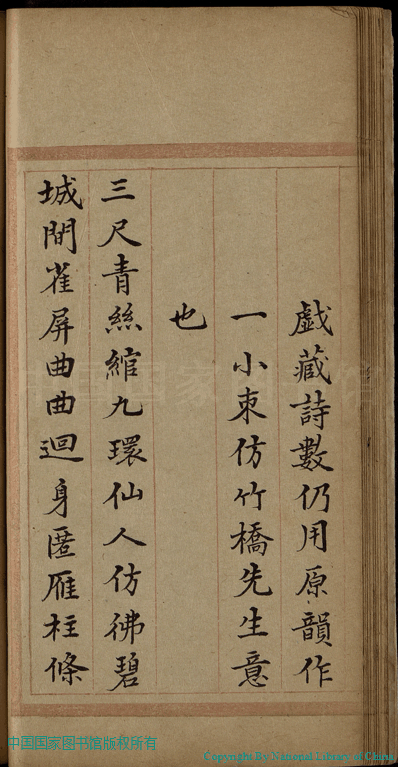 戲藏詩數仍用原韻作
一小束仿竹橋先生意
也
三尺青絲綰九環仙人仿彿碧
城間雀屏曲曲迴身匿雁柱條
中国国家图书馆版权所有
Copyright By National Library of China